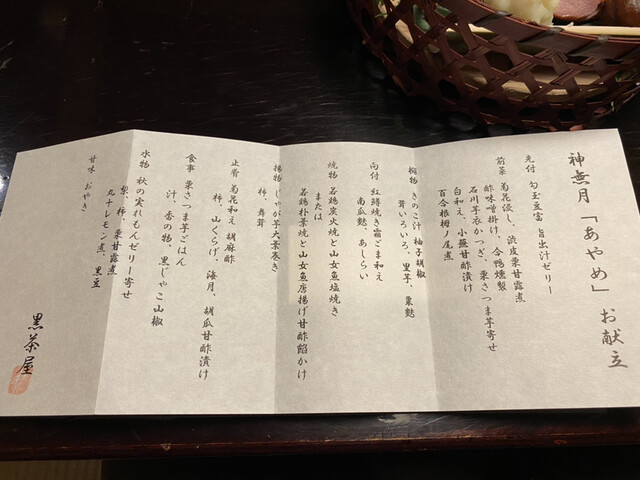 神無月 「あやめ」 お献立
先付 勾玉豆富 旨出汁ゼリー
前菜 菊花浸し、渋皮栗甘露煮
酢味噌掛け、合鴨燻製
石川芋衣かつぎ、栗さつま芋寄せ
白和え、小蕪甘酢漬け
百合根柑ノ尾煮
椀物 きのこ汁 柚子胡椒
茸いろいろ、里芋、粟麩
向付 紅鱒焼き霜ごま和え
南瓜麩、あしらい
焼物 若鶏炭火焼と山女魚塩焼き
または
若鶏朴葉焼と山女魚唐揚げ甘酢餡かけ
揚物 じゃが芋大葉巻き
柿、舞茸
止肴 菊花和え 胡麻酢
柿、山くらげ、海月、胡瓜甘酢漬け
食事 栗さつま芋ごはん
汁、香の物、黒じゃこ山椒
水物 秋の実れもんゼリー寄せ
梨、柿、栗甘露煮、
丸十レモン煮、黒豆
甘味 おやき
黒茶屋